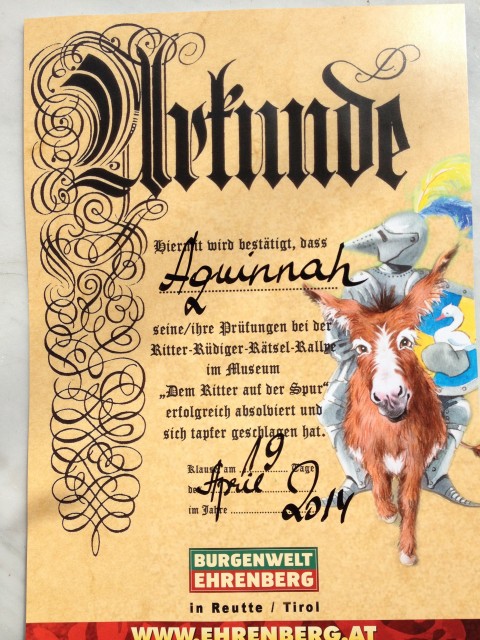 Urkunde
Hiermit wird bestätigt, dass
Aquinnah
seine/ihre Prüfungen bei der
Ritter-Rüdiger-Rätsel-Rallye
im Museum
„Dem Ritter auf der Spur“
erfolgreich absolviert und
sich tapfer geschlagen hat.
Klause am 19 Tage
des Aprile
im Jahre 2014
BURGENWELT
EHRENBERG
in Reutte / Tirol
WWW.EHRENBERG.AT